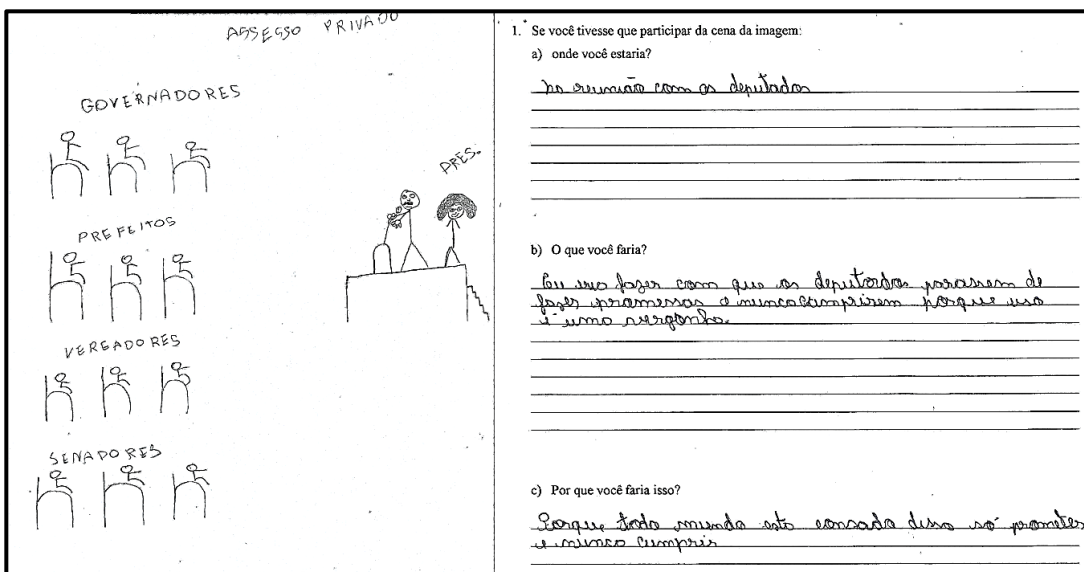 ASSESSO PRIVADO
GOVERNADORES
PRES.
PREFEITOS
VEREADORES
SENADORES
1. Se você tivesse que participar da cena da imagem:
a) onde você estaria?
na reunião com os deputados
b) O que você faria?
Eu iria fazer com que os deputados parassem de
fazer promessas e nunca cumprirem porque isso
é uma vergonha.
c) Por que você faria isso?
Porque todo mundo esta cansado disso só prometer
e nunca cumprir